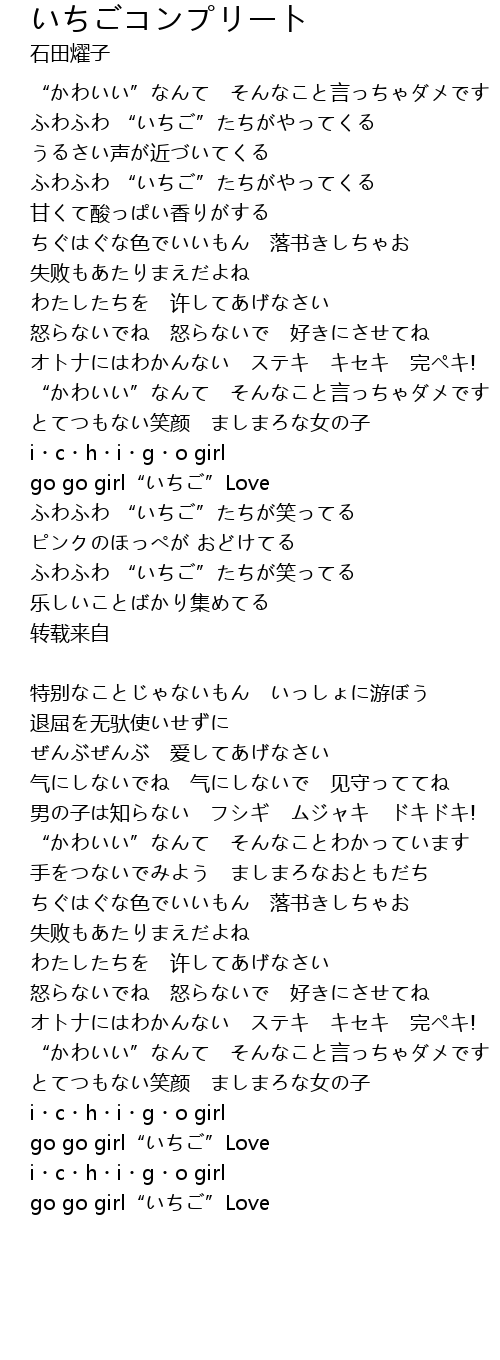 いちごコンプリート
石田燿子
“かわいい”なんて　そんなこと言っちゃダメです
ふわふわ “いちご”たちがやってくる
うるさい声が近づいてくる
ふわふわ “いちご”たちがやってくる
甘くて酸っぱい香りがする
ちぐはぐな色でいいもん　落书きしちゃお
失败もあたりまえだよね
わたしたちを　许してあげなさい
怒らないでね　怒らないで　好きにさせてね
オトナにはわかんない　ステキ　キセキ　完ペキ!
“かわいい”なんて　そんなこと言っちゃダメです
とてつもない笑顔　ましまろな女の子
i・c・h・i・g・o girl
go go girl “いちご”Love
ふわふわ “いちご”たちが笑ってる
ピンクのほっぺが おどけてる
ふわふわ “いちご”たちが笑ってる
乐しいことばかり集めてる
转载来自
特别なことじゃないもん　いっしょに游ぼう
退屈を无驮使いせずに
ぜんぶぜんぶ　爱してあげなさい
气にしないでね　气にしないで　见守っててね
男の子は知らない　フシギ　ムジャキ　ドキドキ!
“かわいい”なんて　そんなことわかっています
手をつないでみよう　ましまろなおともだち
ちぐはぐな色でいいもん　落书きしちゃお
失败もあたりまえだよね
わたしたちを　许してあげなさい
怒らないでね　怒らないで　好きにさせてね
オトナにはわかんない　ステキ　キセキ　完ペキ!
“かわいい”なんて　そんなこと言っちゃダメです
とてつもない笑颜　ましまろな女の子
i・c・h・i・g・o girl
go go girl “いちご”Love
i・c・h・i・g・o girl
go go girl “いちご”Love